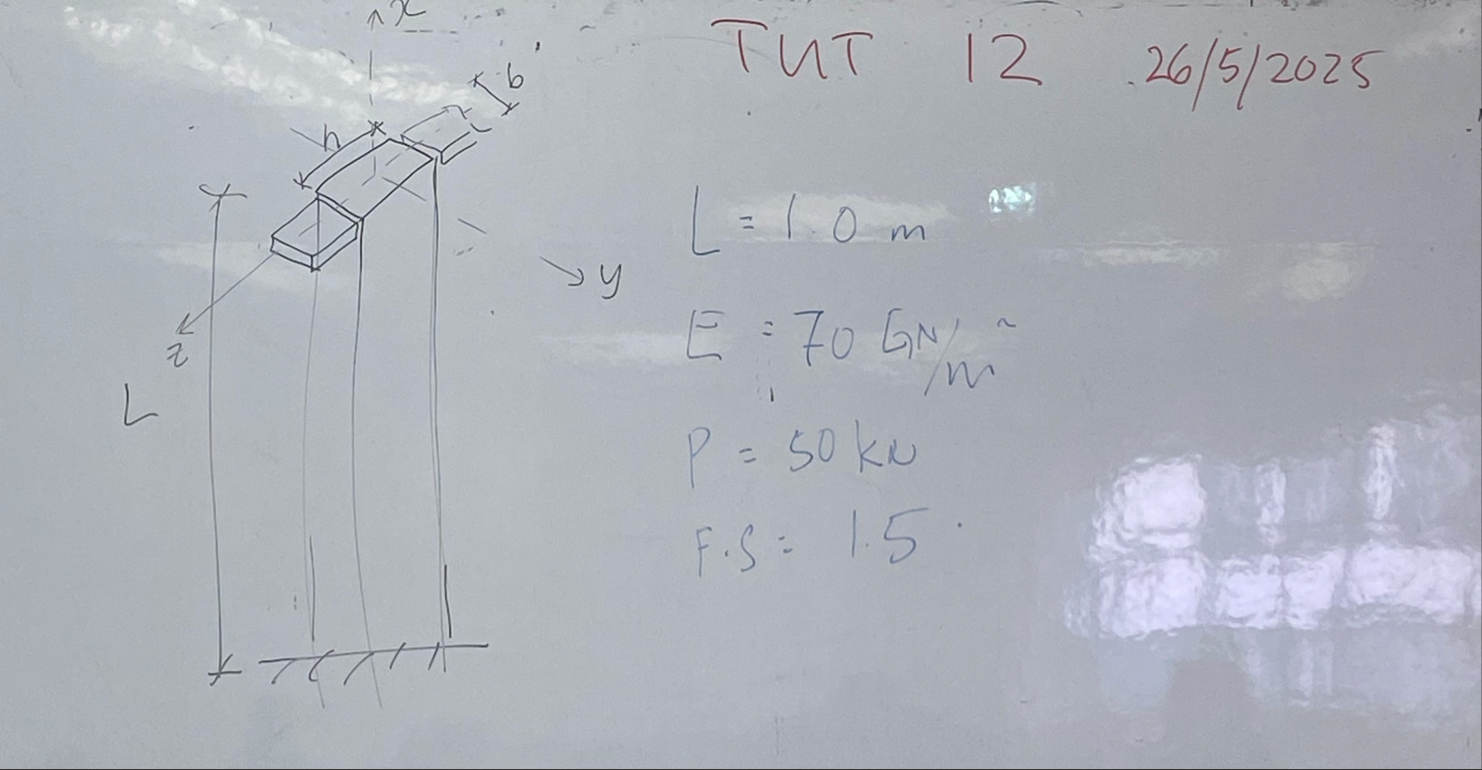 TUT 12 26/5/2025
x
b
h
L = 1.0 m
y
E = 70 GN/m²
z
L
P = 50 kN
F.S = 1.5